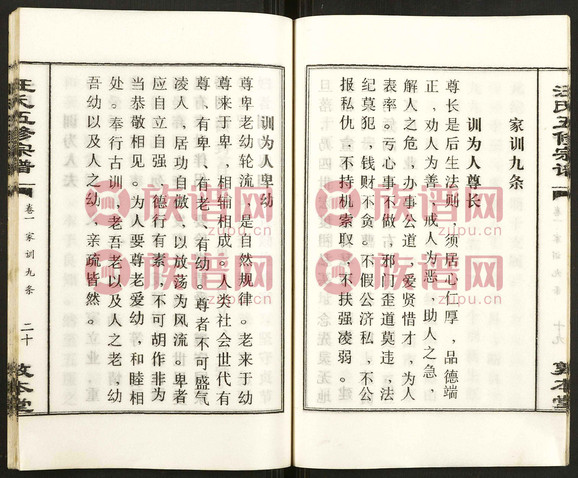 家训九条
训为人尊长
尊长是后生法则，须居心仁厚，品德端
正，劝人为善，戒人为恶，助人之急，
解人之危，办事公道，爱贤惜才，为人
表率。亏心事不做，邪门歪道莫违，法
纪莫犯，钱财不贪。不假公济私，不公
报私仇，不持机索取。不扶强凌弱。
汪氏五修宗谱
卷一
家训九条
十九
敦本堂
训为人卑幼
尊卑老幼轮流，是自然规律。老来于幼
尊来于卑，相辅相成。人类社会世代有
尊、有卑、有老、有幼。尊者不可盛气
凌人，居功自傲，以放荡为风流。卑者
应自立自强，德行有素，不可胡作非为
当恭敬相见。为人要尊老爱幼、和睦相
处。奉行古训，老吾老以及人之老，幼
吾幼以及人之幼，亲疏皆然。
汪氏五修宗谱
卷一
家训九条
二十
敦本堂
族谱网
zupu.cn
族谱网
zupu.cn
族谱网
zupu.cn
族谱网
zupu.cn